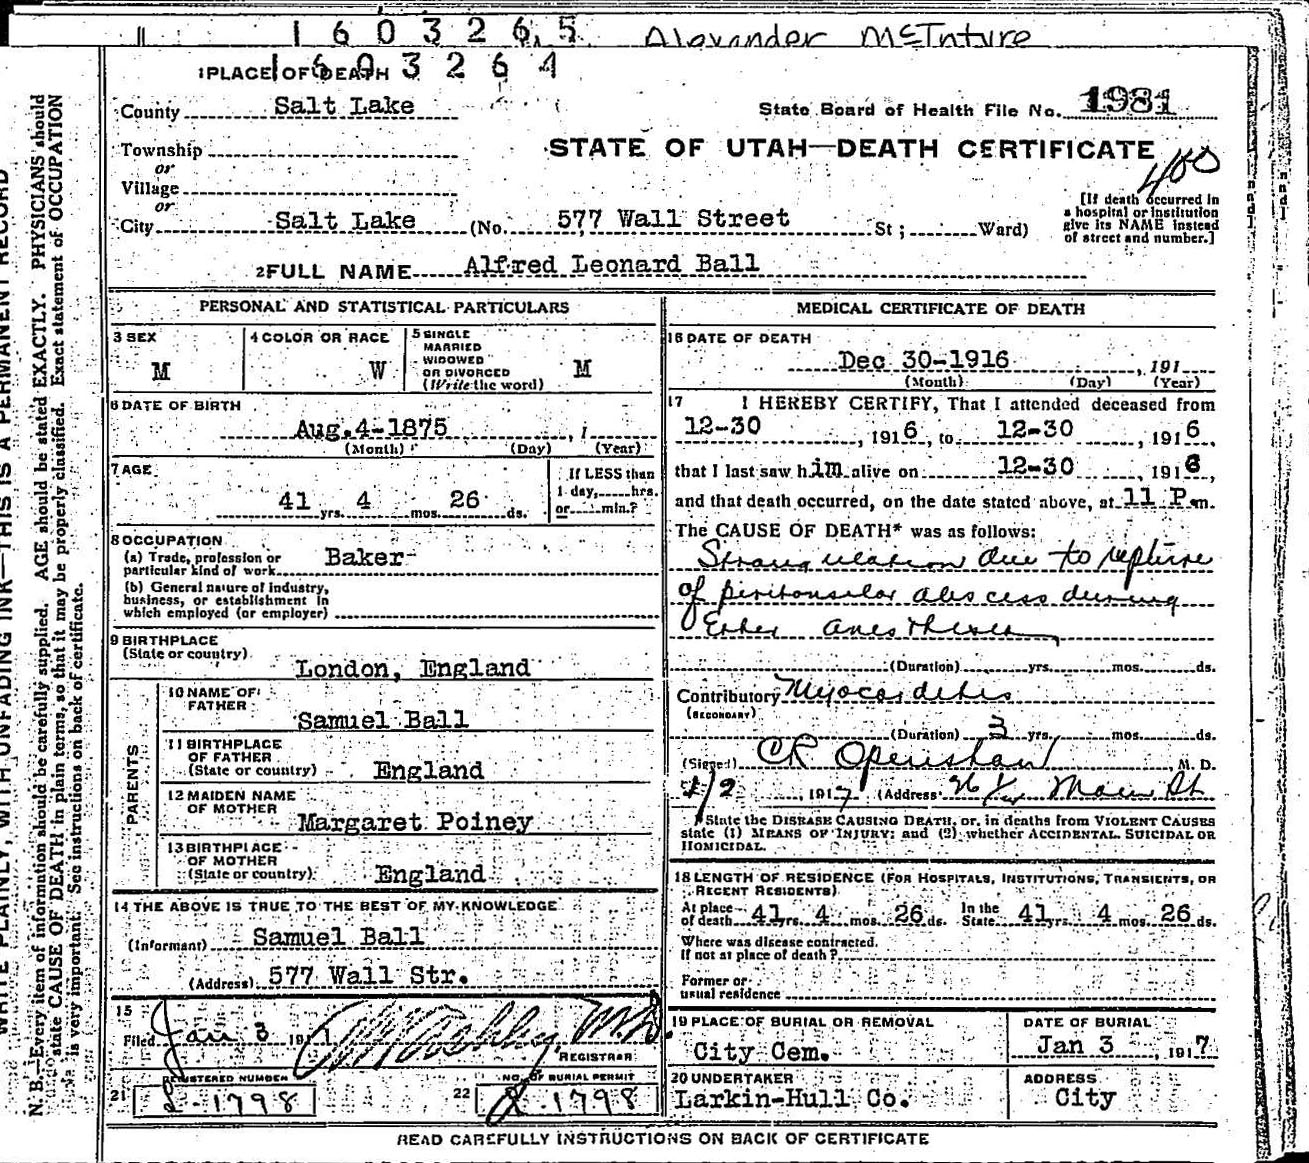 1603265 Alexander McInture
1603264
1 PLACE OF DEATH
County Salt Lake
State Board of Health File No. 1981
Township
or
Village
or
STATE OF UTAH—DEATH CERTIFICATE
400
City Salt Lake (No. 577 Wall Street St; Ward)
[If death occurred in
a hospital or institution
give its NAME instead
of street and number.]
2 FULL NAME Alfred Leonard Ball
PERSONAL AND STATISTICAL PARTICULARS
3 SEX
M
4 COLOR OR RACE
W
5 SINGLE
MARRIED
WIDOWED
OR DIVORCED
(Write the word)
M
6 DATE OF BIRTH
Aug. 4-1875, 1
(Month) (Day) (Year)
7 AGE
41 yrs. 4 mos. 26 ds.
If LESS than
1 day,......hrs.
or......min.?
8 OCCUPATION
(a) Trade, profession or
particular kind of work Baker
(b) General nature of industry,
business, or establishment in
which employed (or employer)
9 BIRTHPLACE
(State or country)
London, England
PARENTS
10 NAME OF
FATHER
Samuel Ball
11 BIRTHPLACE
OF FATHER
(State or country) England
12 MAIDEN NAME
OF MOTHER
Margaret Poiney
13 BIRTHPLACE
OF MOTHER
(State or country) England
14 THE ABOVE IS TRUE TO THE BEST OF MY KNOWLEDGE
(Informant) Samuel Ball
(Address) 577 Wall Str.
15
Filed Jan 3 191 M.D.
REGISTRAR
REGISTERED NUMBER
21 1798
NO. OF BURIAL PERMIT
22 1798
MEDICAL CERTIFICATE OF DEATH
16 DATE OF DEATH
Dec 30-1916, 191
(Month) (Day) (Year)
17 I HEREBY CERTIFY, That I attended deceased from
12-30, 1916, to 12-30, 1916,
that I last saw him alive on 12-30 1916,
and that death occurred, on the date stated above, at 11 P.m.
The CAUSE OF DEATH* was as follows:
Strangulation due to repture
of peritonsular abscess during
Ether anesthesia
(Duration) yrs. mos. ds.
Contributory Myocardetis
(SECONDARY)
(Duration) 3 yrs. mos. ds.
(Signed) CR Openshaw, M. D.
1/2, 1917 (Address Main St
*State the DISEASE CAUSING DEATH, or, in deaths from VIOLENT CAUSES
state (1) MEANS OF INJURY; and (2) whether ACCIDENTAL, SUICIDAL OR
HOMICIDAL.
18 LENGTH OF RESIDENCE (FOR HOSPITALS, INSTITUTIONS, TRANSIENTS, OR
RECENT RESIDENTS)
At place
of death 41 yrs. 4 mos. 26 ds. In the
State 41 yrs. 4 mos. 26 ds.
Where was disease contracted.
If not at place of death?
Former or
usual residence
19 PLACE OF BURIAL OR REMOVAL
City Cem.
DATE OF BURIAL
Jan 3, 1917
20 UNDERTAKER
Larkin-Hull Co.
ADDRESS
City
READ CAREFULLY INSTRUCTIONS ON BACK OF CERTIFICATE
WRITE PLAINLY, WITH UNFADING INK—THIS IS A PERMANENT RECORD
N. B.—Every item of information should be carefully supplied. AGE should be stated EXACTLY. PHYSICIANS should
state CAUSE OF DEATH in plain terms, so that it may be properly classified. Exact statement of OCCUPATION
is very important. See instructions on back of certificate.